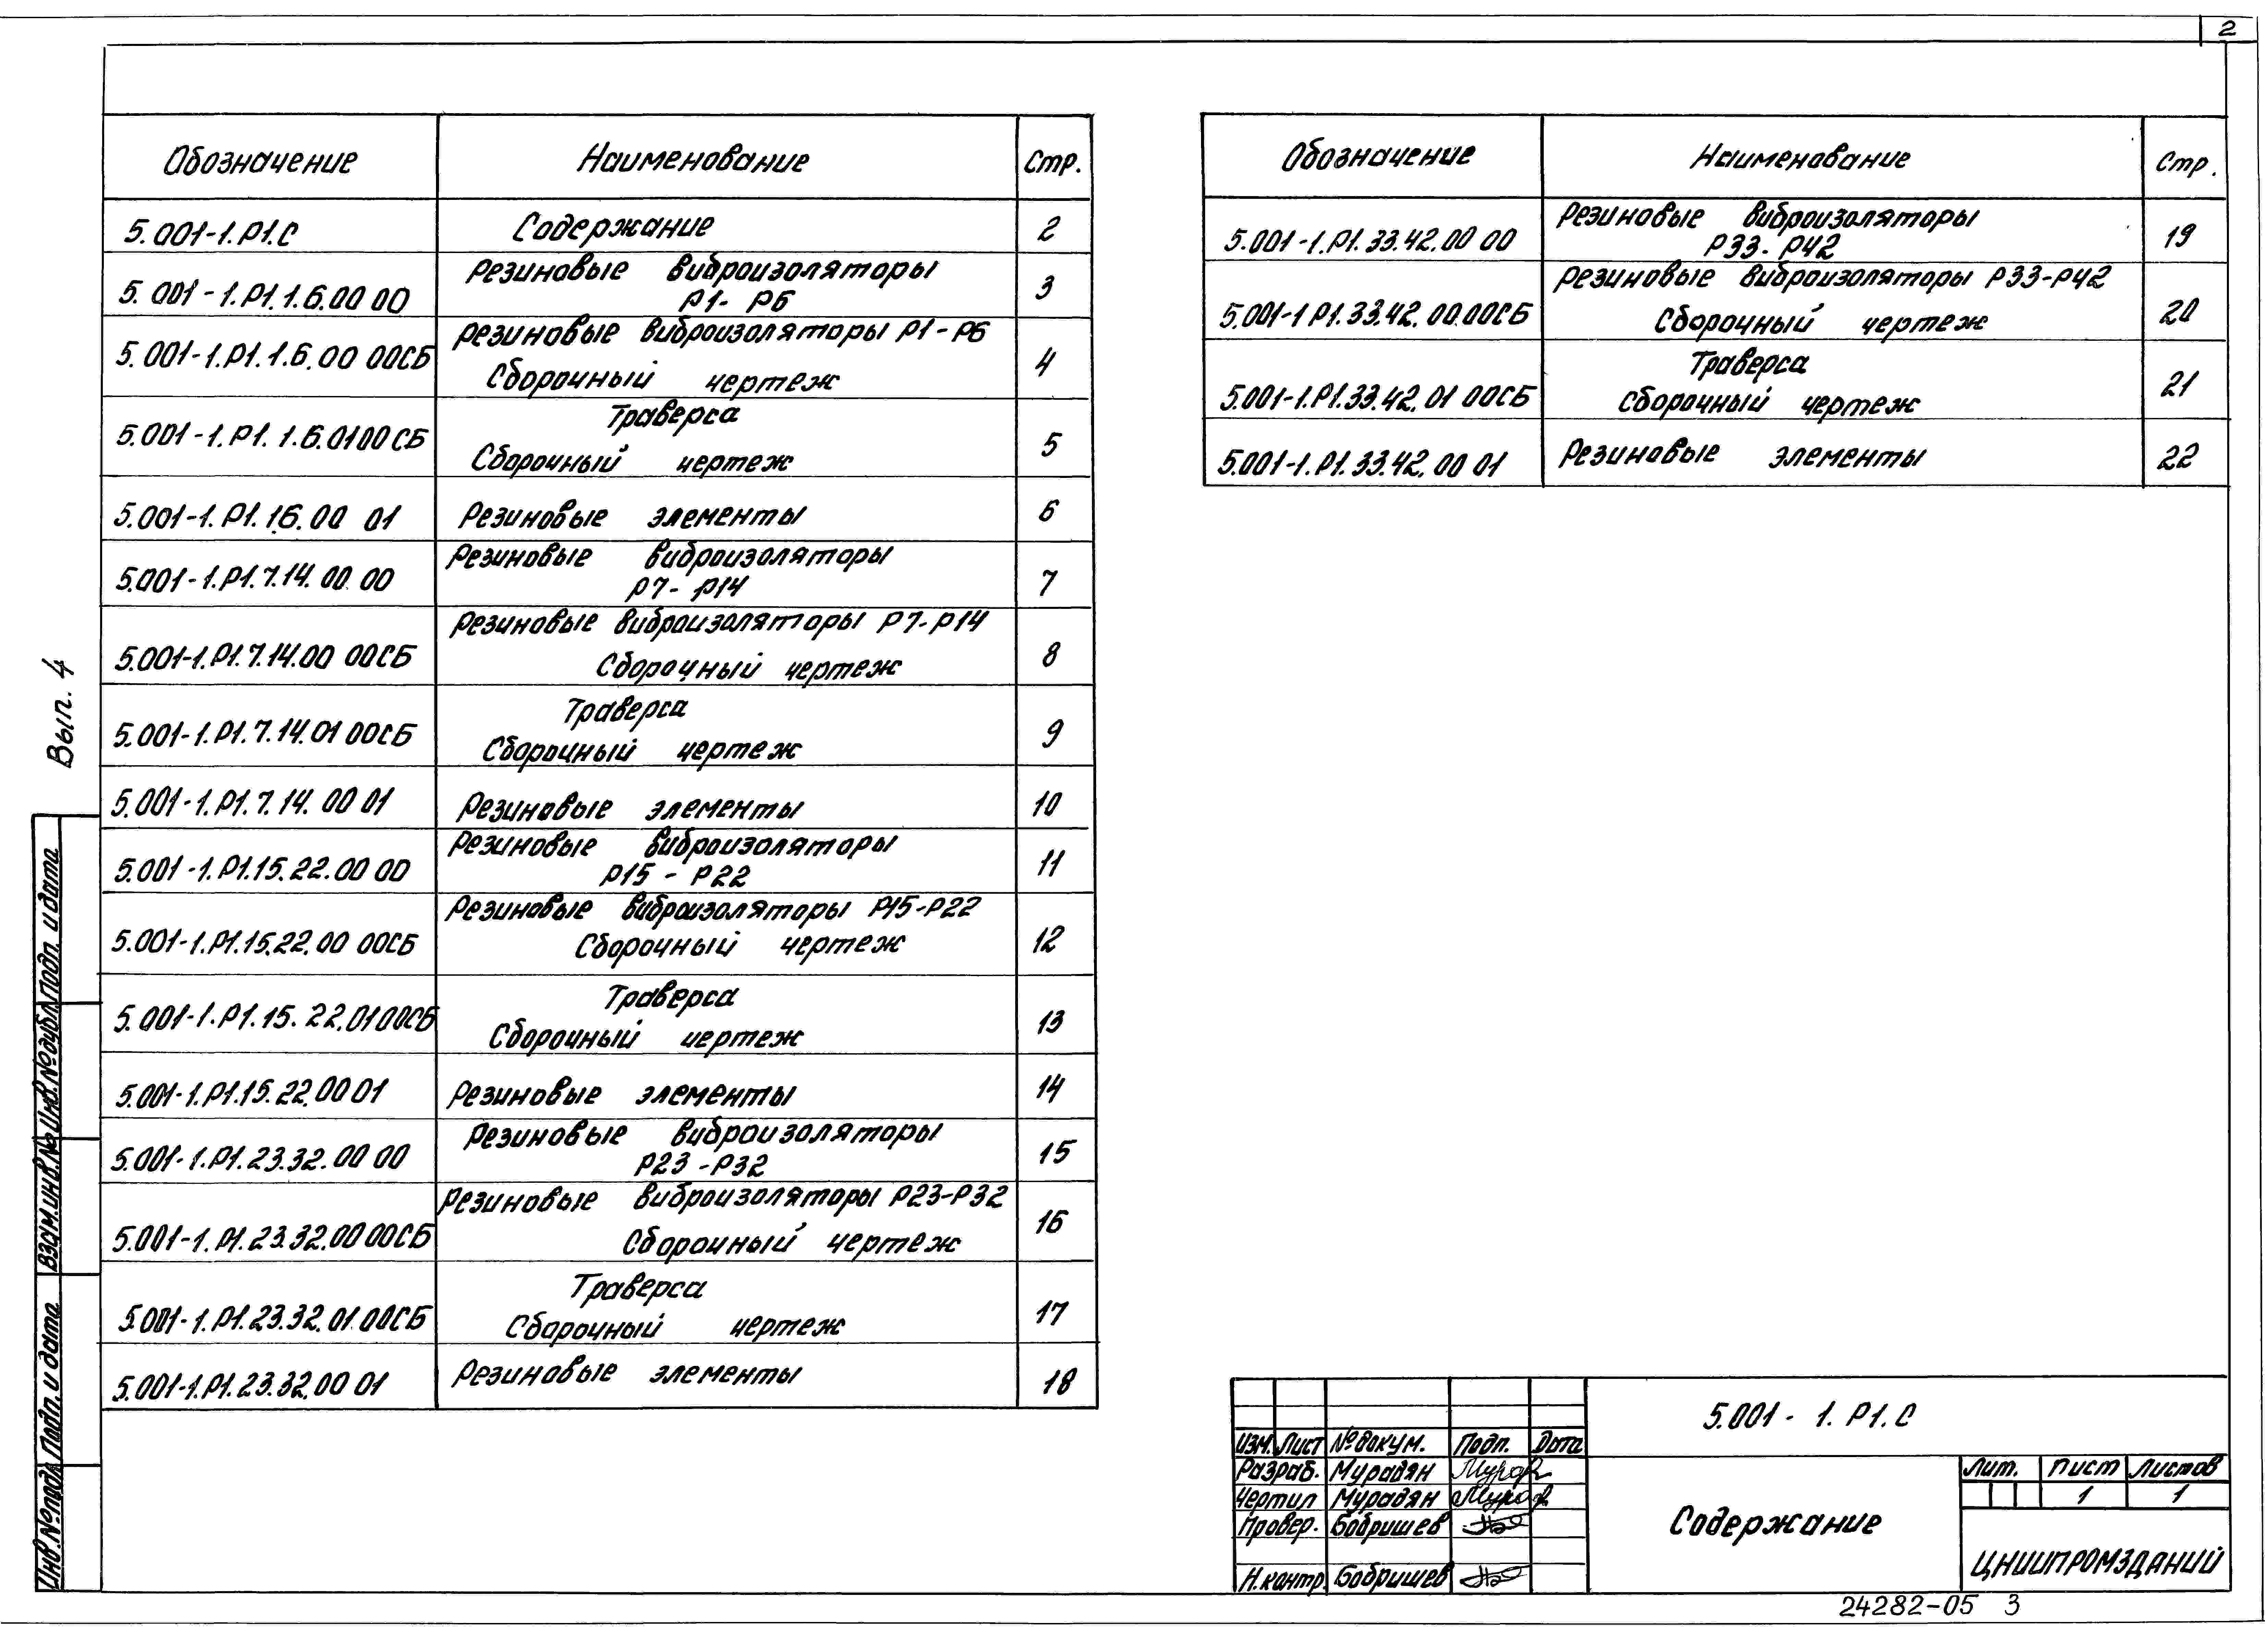 2
Обозначение Наименование Стр.
5.001-1.Р1.С Содержание 2
5.001-1.Р1.1.6.00 00 Резиновые виброизоляторы Р1-Р6 3
5.001-1.Р1.1.6.00 00СБ Резиновые виброизоляторы Р1-Р6 Сборочный чертеж 4
5.001-1.Р1.1.6.01 00СБ Траверса Сборочный чертеж 5
5.001-1.Р1.1.6.00 01 Резиновые элементы 6
5.001-1.Р1.7.14.00 00 Резиновые виброизоляторы Р7-Р14 7
5.001-1.Р1.7.14.00 00СБ Резиновые виброизоляторы Р7-Р14 Сборочный чертеж 8
5.001-1.Р1.7.14.01 00СБ Траверса Сборочный чертеж 9
5.001-1.Р1.7.14.00 01 Резиновые элементы 10
5.001-1.Р1.15.22.00 00 Резиновые виброизоляторы Р15-Р22 11
5.001-1.Р1.15.22.00 00СБ Резиновые виброизоляторы Р15-Р22 Сборочный чертеж 12
5.001-1.Р1.15.22.01 00СБ Траверса Сборочный чертеж 13
5.001-1.Р1.15.22.00 01 Резиновые элементы 14
5.001-1.Р1.23.32.00 00 Резиновые виброизоляторы Р23-Р32 15
5.001-1.Р1.23.32.00 00СБ Резиновые виброизоляторы Р23-Р32 Сборочный чертеж 16
5.001-1.Р1.23.32.01 00СБ Траверса Сборочный чертеж 17
5.001-1.Р1.23.32.00 01 Резиновые элементы 18
Обозначение Наименование Стр.
5.001-1.Р1.33.42.00 00 Резиновые виброизоляторы Р33-Р42 19
5.001-1 Р1.33.42.00.00СБ Резиновые виброизоляторы Р33-Р42 Сборочный чертеж 20
5.001-1.Р1.33.42.01 00СБ Траверса Сборочный чертеж 21
5.001-1.Р1.33.42.00 01 Резиновые элементы 22
Вып. 4
Инв.№подл. Подп. и дата Взам.инв.№ Инв.№дубл. Подп. и дата
Изм. Лист № докум. Подп. Дата
Разраб. Мурадян
Чертил Мурадян
Провер. Бобришев
Н.контр Бобришев
5.001-1.Р1.С
Содержание
Лит. Лист Листов
1 1
ЦНИИПРОМЗДАНИЙ
24282-05 3